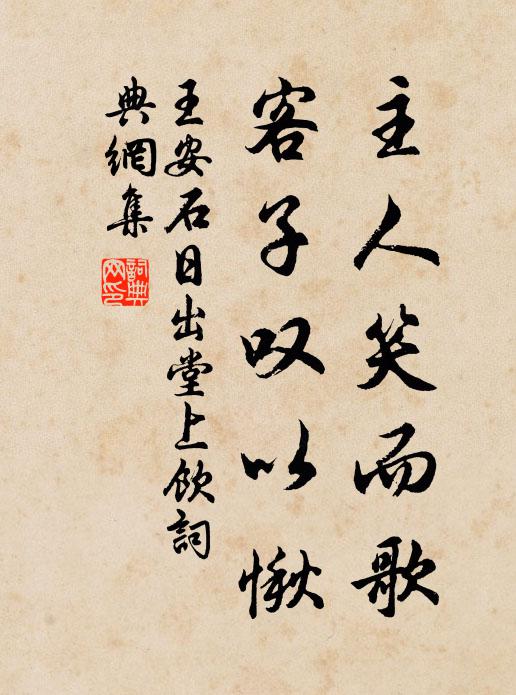 主人笑而歌
客子叹以愀
王安石日出堂上飲詞
典網集
詞典网印